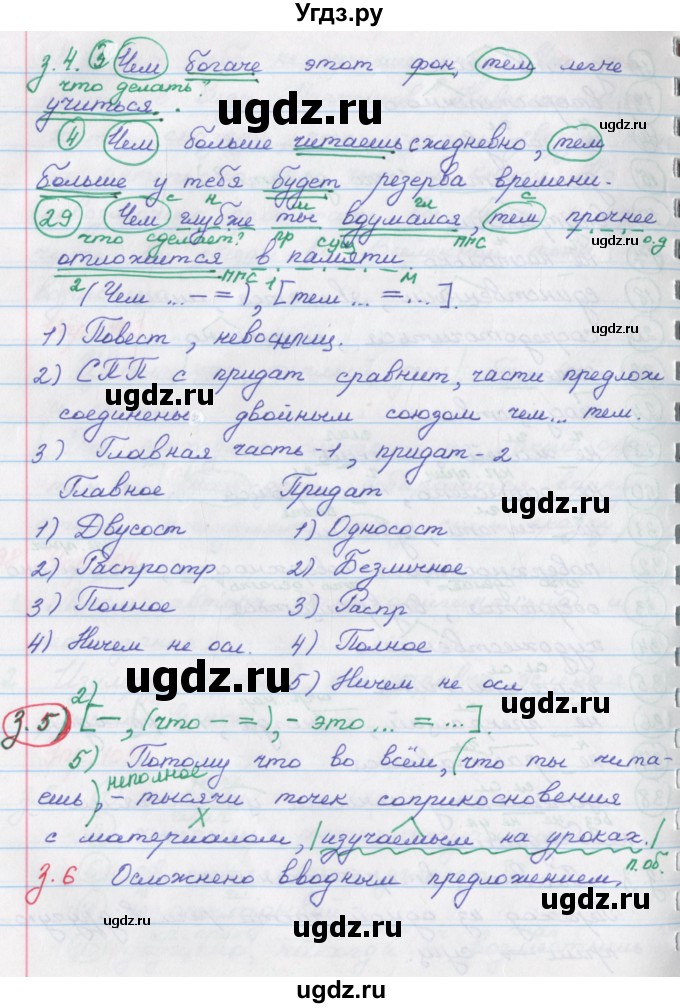 Угдз.ру
з.4. 3 Чем богаче этот фон, тем легче
что делать?
учиться.
ugdz.ru
4 Чем больше читаешь ежедневно, тем
больше у тебя будет резерва времени.
с н м гл с
29 Чем глубже ты вдумался, тем прочнее
что сделает? пр сущ ппс о.д
отложится в памяти
ппс 1 м
2 (Чем ... – =), [тем ... = ...].
1) Повест, невосклиц.
ugdz.ru
2) СПП с придат сравнит, части предлож
соединены двойным союзом чем... тем.
3) Главная часть-1, придат-2
Главное Придат
ugdz.ru
1) Двусост 1) Односост
2) Распростр 2) Безличное
3) Полное 3) Распр
4) Ничем не осл. 4) Полное
ugdz.ru
5) Ничем не осл
2)
з.5) [–, (что – =), – это ... = ...].
5) Потому что во всём, (что ты чита-
неполное
ешь), – тысячи точек соприкосновения
с материалом, |изучаемым на уроках.|
п.об.
з.6 Осложнено вводным предложением,
ugdz.ru
Угдз.ру